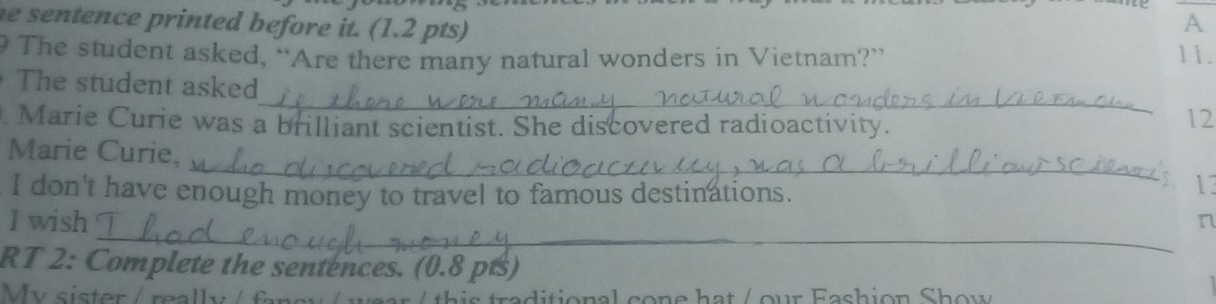 e sentence printed before it. (1.2 pts)
The student asked, “Are there many natural wonders in Vietnam?”
The student asked if there were many natural wonders in Vietnam
. Marie Curie was a brilliant scientist. She discovered radioactivity.
Marie Curie, who discovered radioactivity, was a brilliant scientis
I don't have enough money to travel to famous destinations.
I wish I had enough money
RT 2: Complete the sentences. (0.8 pts)
My sister / really / fancy / wear / this traditional cone hat / our Fashion Show
A
11.
12
13